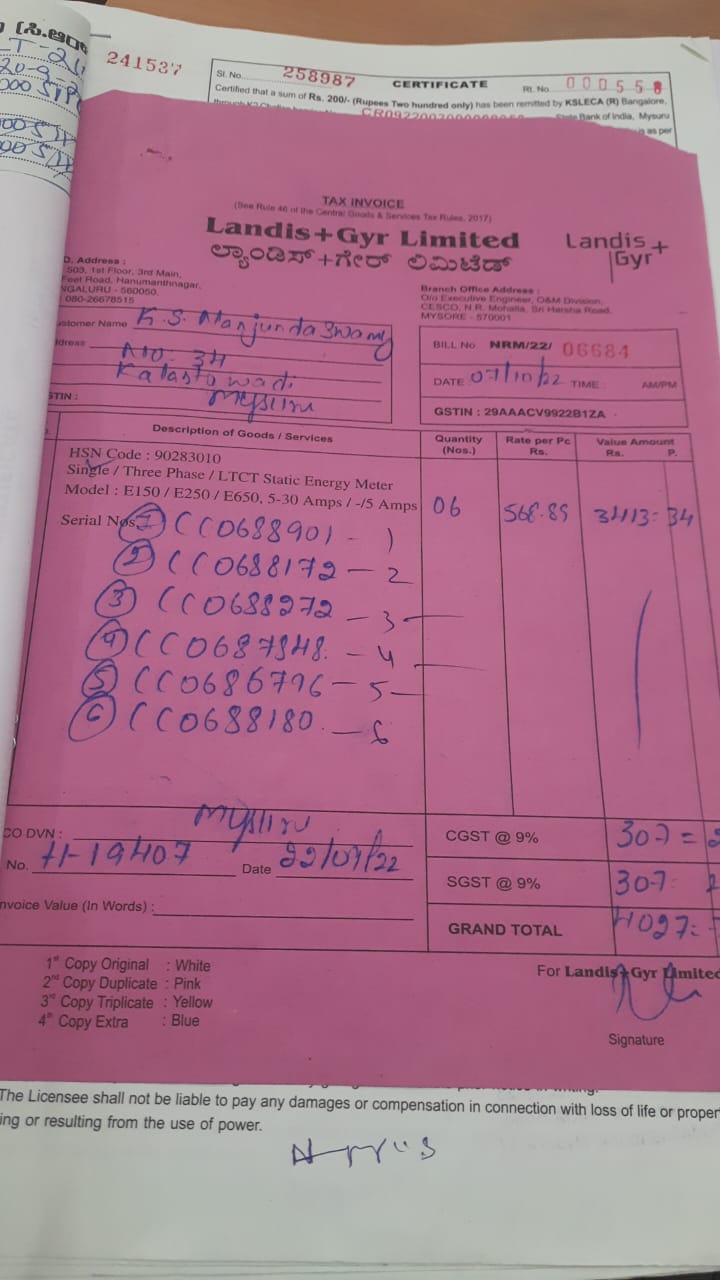 241537
Sl. No. 258987 CERTIFICATE Rt. No. 000558
Certified that a sum of Rs. 200/- (Rupees Two hundred only) has been remitted by KSLECA (R) Bangalore,
Bank of India, Mysuru
as per
TAX INVOICE
(See Rule 46 of the Central Goods & Services Tax Rules, 2017)
Landis+Gyr Limited
ಲ್ಯಾಂಡಿಸ್+ಗೇರ್ ಲಿಮಿಟೆಡ್
Landis+
Gyr
D. Address :
503, 1st Floor, 3rd Main,
Feet Road, Hanumanthnagar,
NGALURU - 560050.
080-26678515
Branch Office Address :
O/o Executive Engineer, O&M Division,
CESCO, N.R. Mohalla, Sri Harsha Road,
MYSORE - 570001
ustomer Name K.S. Manjunda Swamy
ddress No- 34
Kalastawadi
Mysuru
STIN :
BILL No NRM/22/ 06684
DATE 07/10/22 TIME : AM/PM
GSTIN : 29AAACV9922B1ZA
Description of Goods / Services Quantity (Nos.) Rate per Pc Rs. Value Amount Rs. P.
HSN Code : 90283010
Single / Three Phase / LTCT Static Energy Meter
Model : E150 / E250 / E650, 5-30 Amps / -/5 Amps 06 568.89 3413=34
Serial Nos. 1 CC0688901 - 1
2 CC0688172 - 2
3 CC0688272 - 3
4 CC0687348 - 4
5 CC0686796 - 5
6 CC0688180 - 6
CO DVN : Mysuru
No. H-19407 Date 22/07/22
nvoice Value (In Words) :
CGST @ 9% 307=
SGST @ 9% 307=
GRAND TOTAL 4027=
1st Copy Original : White
2nd Copy Duplicate : Pink
3rd Copy Triplicate : Yellow
4th Copy Extra : Blue
For Landis+Gyr Limited
Signature
The Licensee shall not be liable to pay any damages or compensation in connection with loss of life or proper
ing or resulting from the use of power.